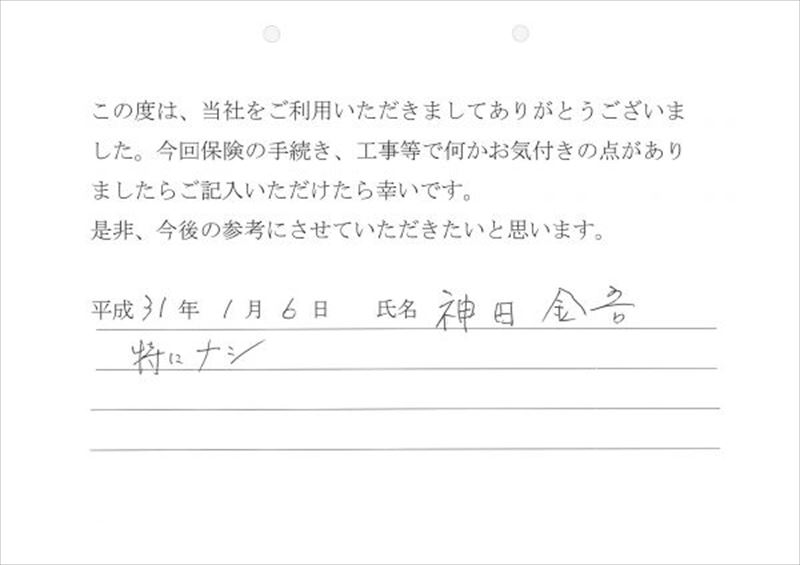 この度は、当社をご利用いただきましてありがとうございま
した。今回保険の手続き、工事等で何かお気付きの点があり
ましたらご記入いただけたら幸いです。
是非、今後の参考にさせていただきたいと思います。
平成 31 年 1 月 6 日 氏名 神田 金吾
特にナシ